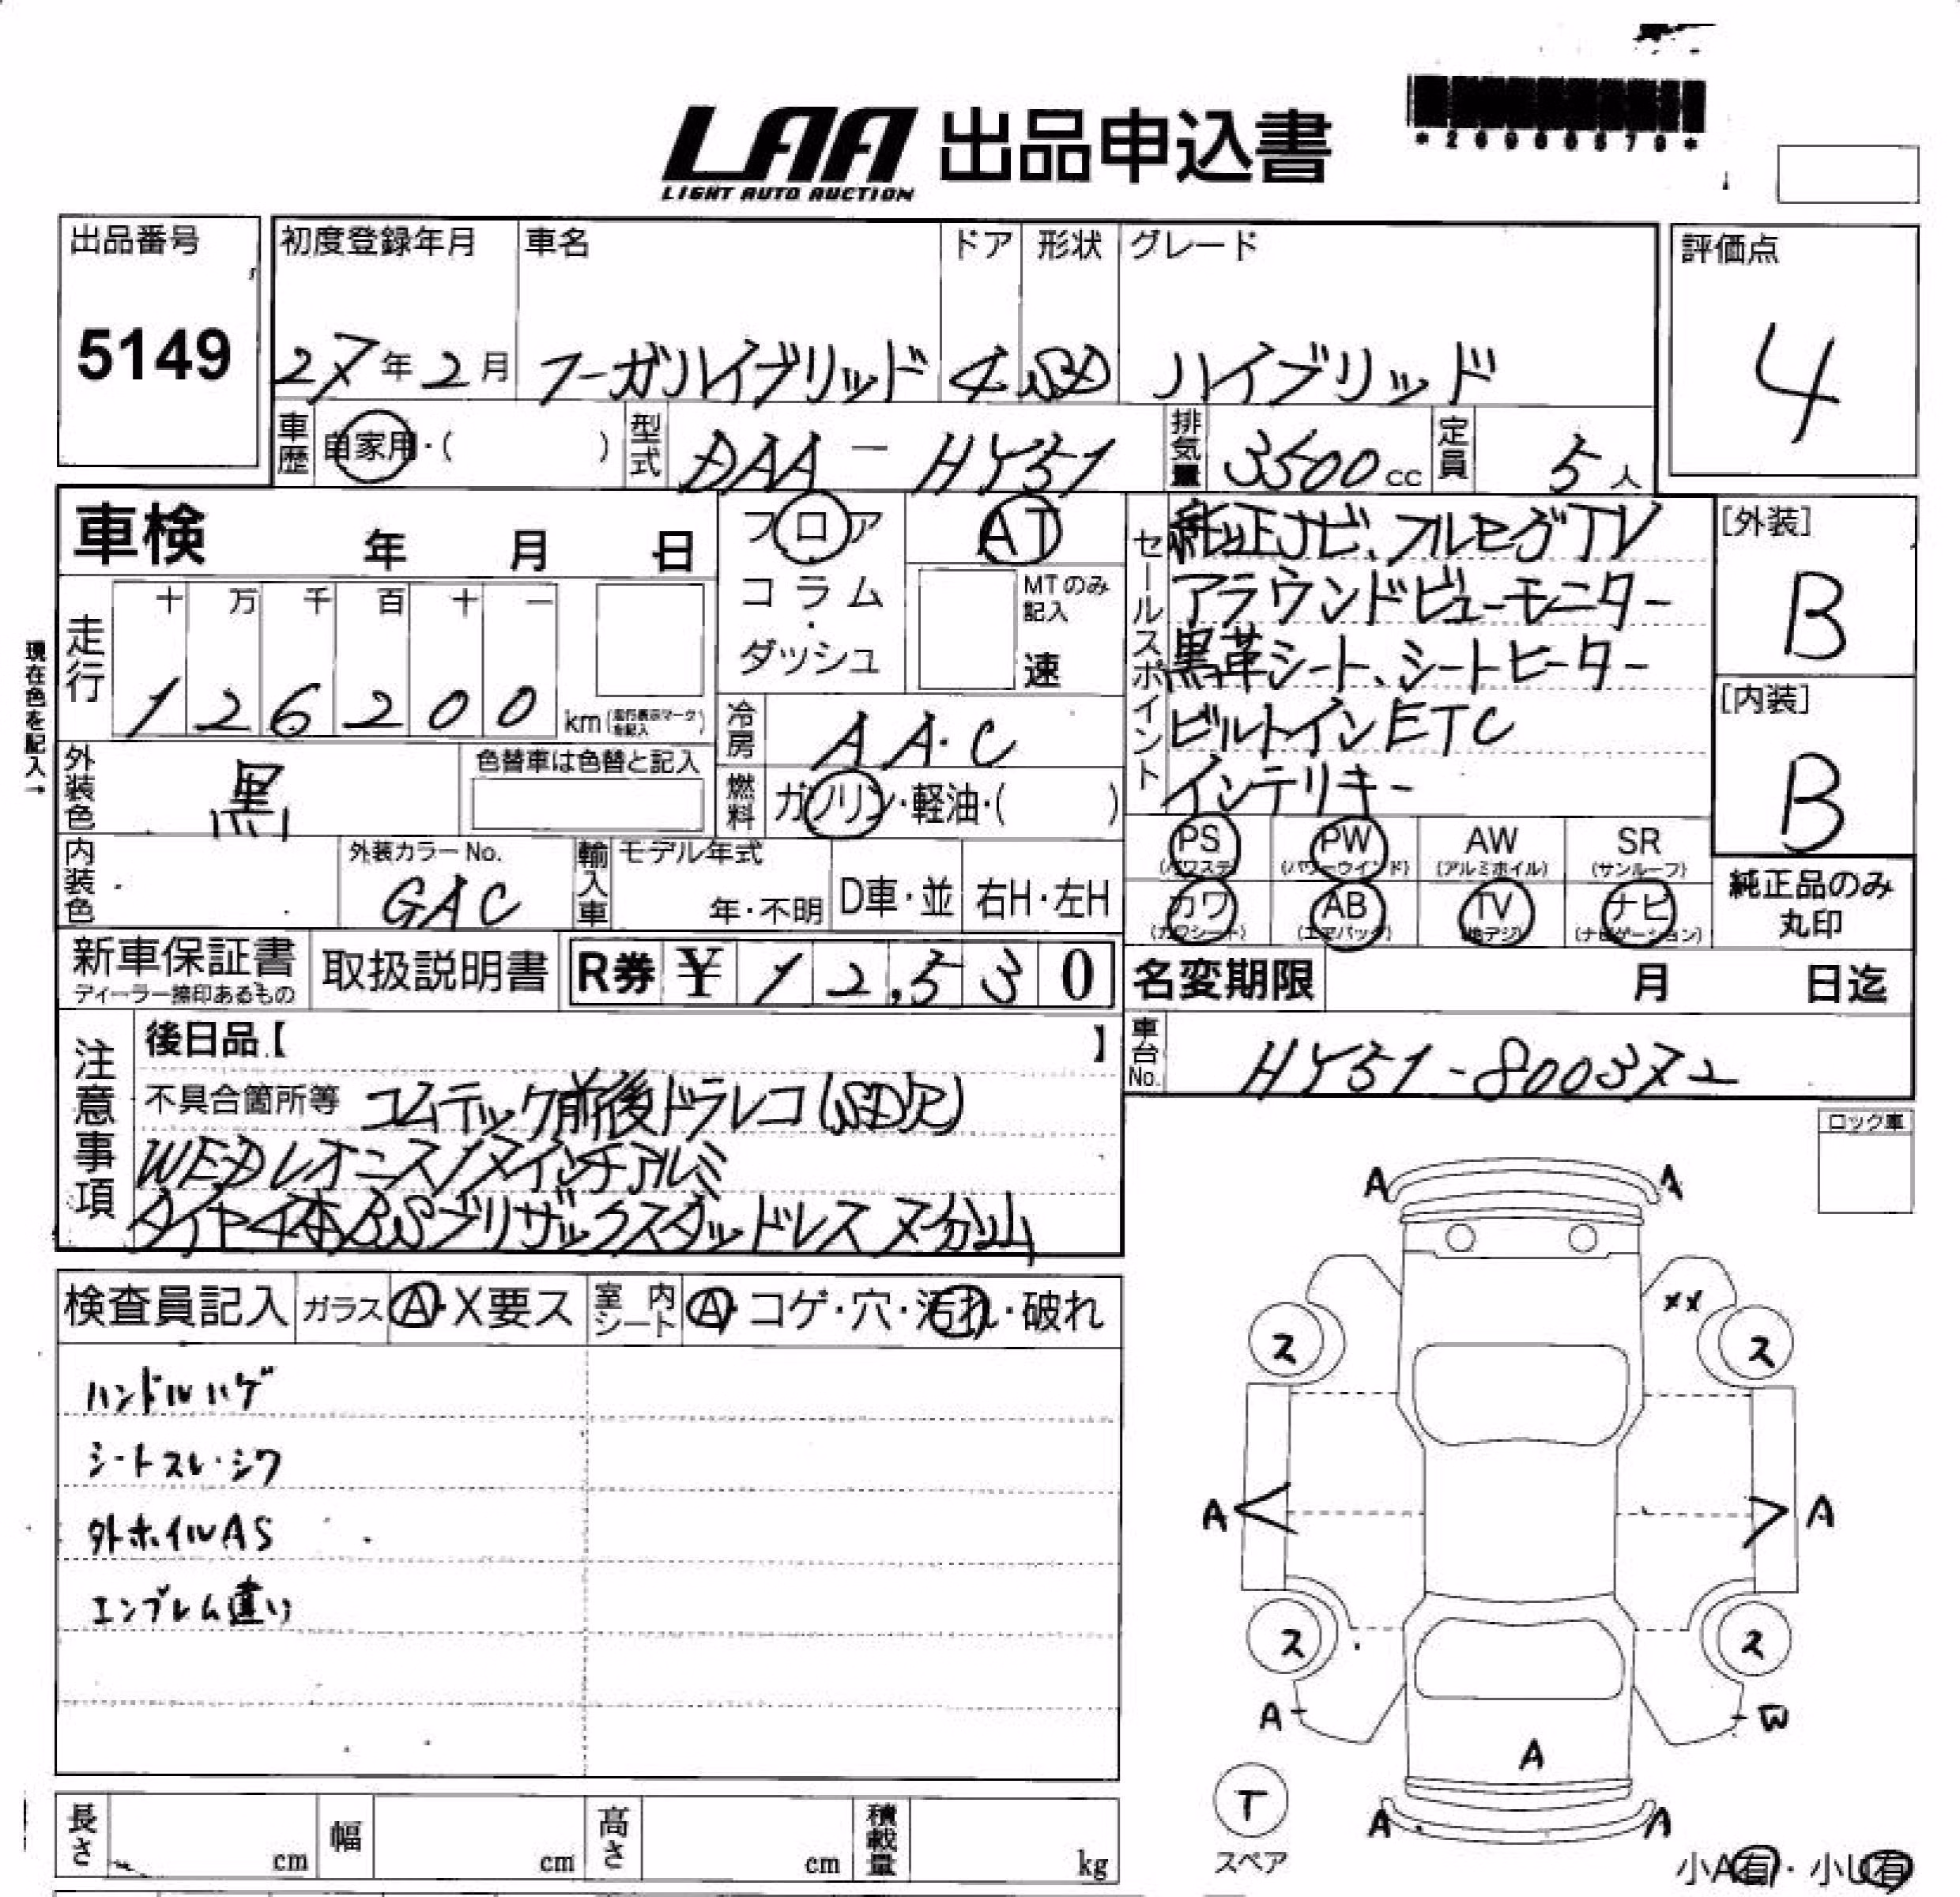 LAA 出品申込書
LIGHT AUTO AUCTION
出品番号 初度登録年月 車名 ドア 形状 グレード 評価点
5149 27年2月 フーガハイブリッド 4 SD ハイブリッド 4
車歴 自家用・( ) 型式 DAA-HY51 排気量 3500cc 定員 5人
車検 年 月 日
フロア・コラム・ダッシュ
AT
MTのみ記入 速
セールスポイント
純正ナビ、フルセグTV
アラウンドビューモニター
黒革シート、シートヒーター
ビルトインETC
インテリキー
[外装]
B
[内装]
B
現在色を記入→
走行 十 万 千 百 十 一
1 2 6 2 0 0 km(走行表示マークを記入)
冷房 AA・C
外装色 黒 色替車は色替と記入
燃料 ガソリン・軽油・( )
内装色 外装カラーNo. GAC
輸入車 モデル年式 年・不明 D車・並 右H・左H
PS(パワステ) PW(パワーウインド) AW(アルミホイル) SR(サンルーフ)
カワ(カワシート) AB(エアバック) TV(地デジ) ナビ(ナビゲーション)
純正品のみ丸印
新車保証書 ディーラー捺印あるもの 取扱説明書 R券 ¥ 12,530
名変期限 月 日迄
車台No. HY51-800372
注意事項
後日品【 】
不具合箇所等 コムテック前後ドラレコ(SD欠)
WEDレオニス17インチアルミ
タイヤ4本BSブリザックスタッドレス 7分山
ロック車
検査員記入 ガラス A・X要ス 室内シート A・コゲ・穴・汚れ・破れ
ハンドルハゲ
シートスレ・シワ
外ホイルAS
エンブレム違い
A A
XX
ス ス
A A
ス ス
A W
A
T
スペア
A A
小A有・小U有
長さ cm 幅 cm 高さ cm 積載量 kg